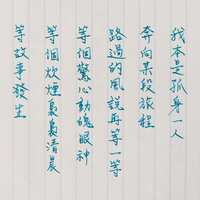 我本是孤身一人
奔向某段旅程
路過的風說再等一等
等個驚心動魄眼神
等個炊煙裊裊清晨
等故事發生